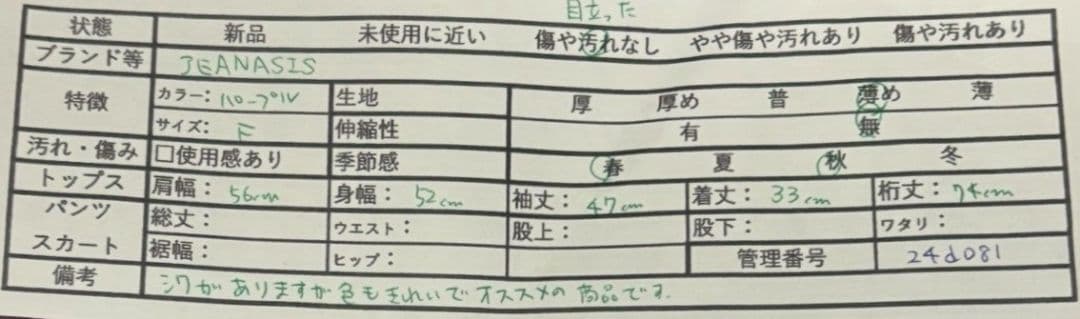 目立った
状態 新品 未使用に近い 傷や汚れなし やや傷や汚れあり 傷や汚れあり
ブランド等 JEANASIS
特徴 カラー: パープル 生地 厚 厚め 普 薄め 薄
サイズ: F 伸縮性 有 無
汚れ・傷み □使用感あり 季節感 春 夏 秋 冬
トップス 肩幅: 56cm 身幅: 52cm 袖丈: 47cm 着丈: 33cm 裄丈: 74cm
パンツ スカート 総丈: ウエスト: 股上: 股下: ワタリ:
裾幅: ヒップ: 管理番号 24d081
備考 シワがありますが色もきれいでオススメの商品です.